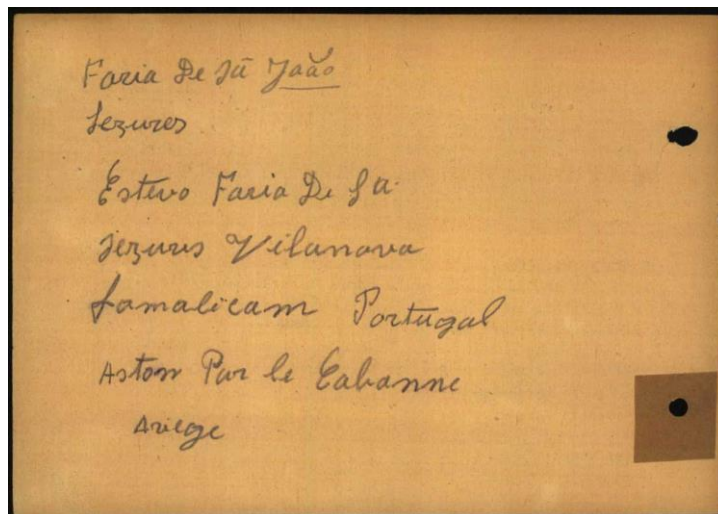 Faria De Sá João
Sezures
Estevo Faria De Sa
Sezures Vilanova
famalicam Portugal
Aston Par le Cabanne
Ariege